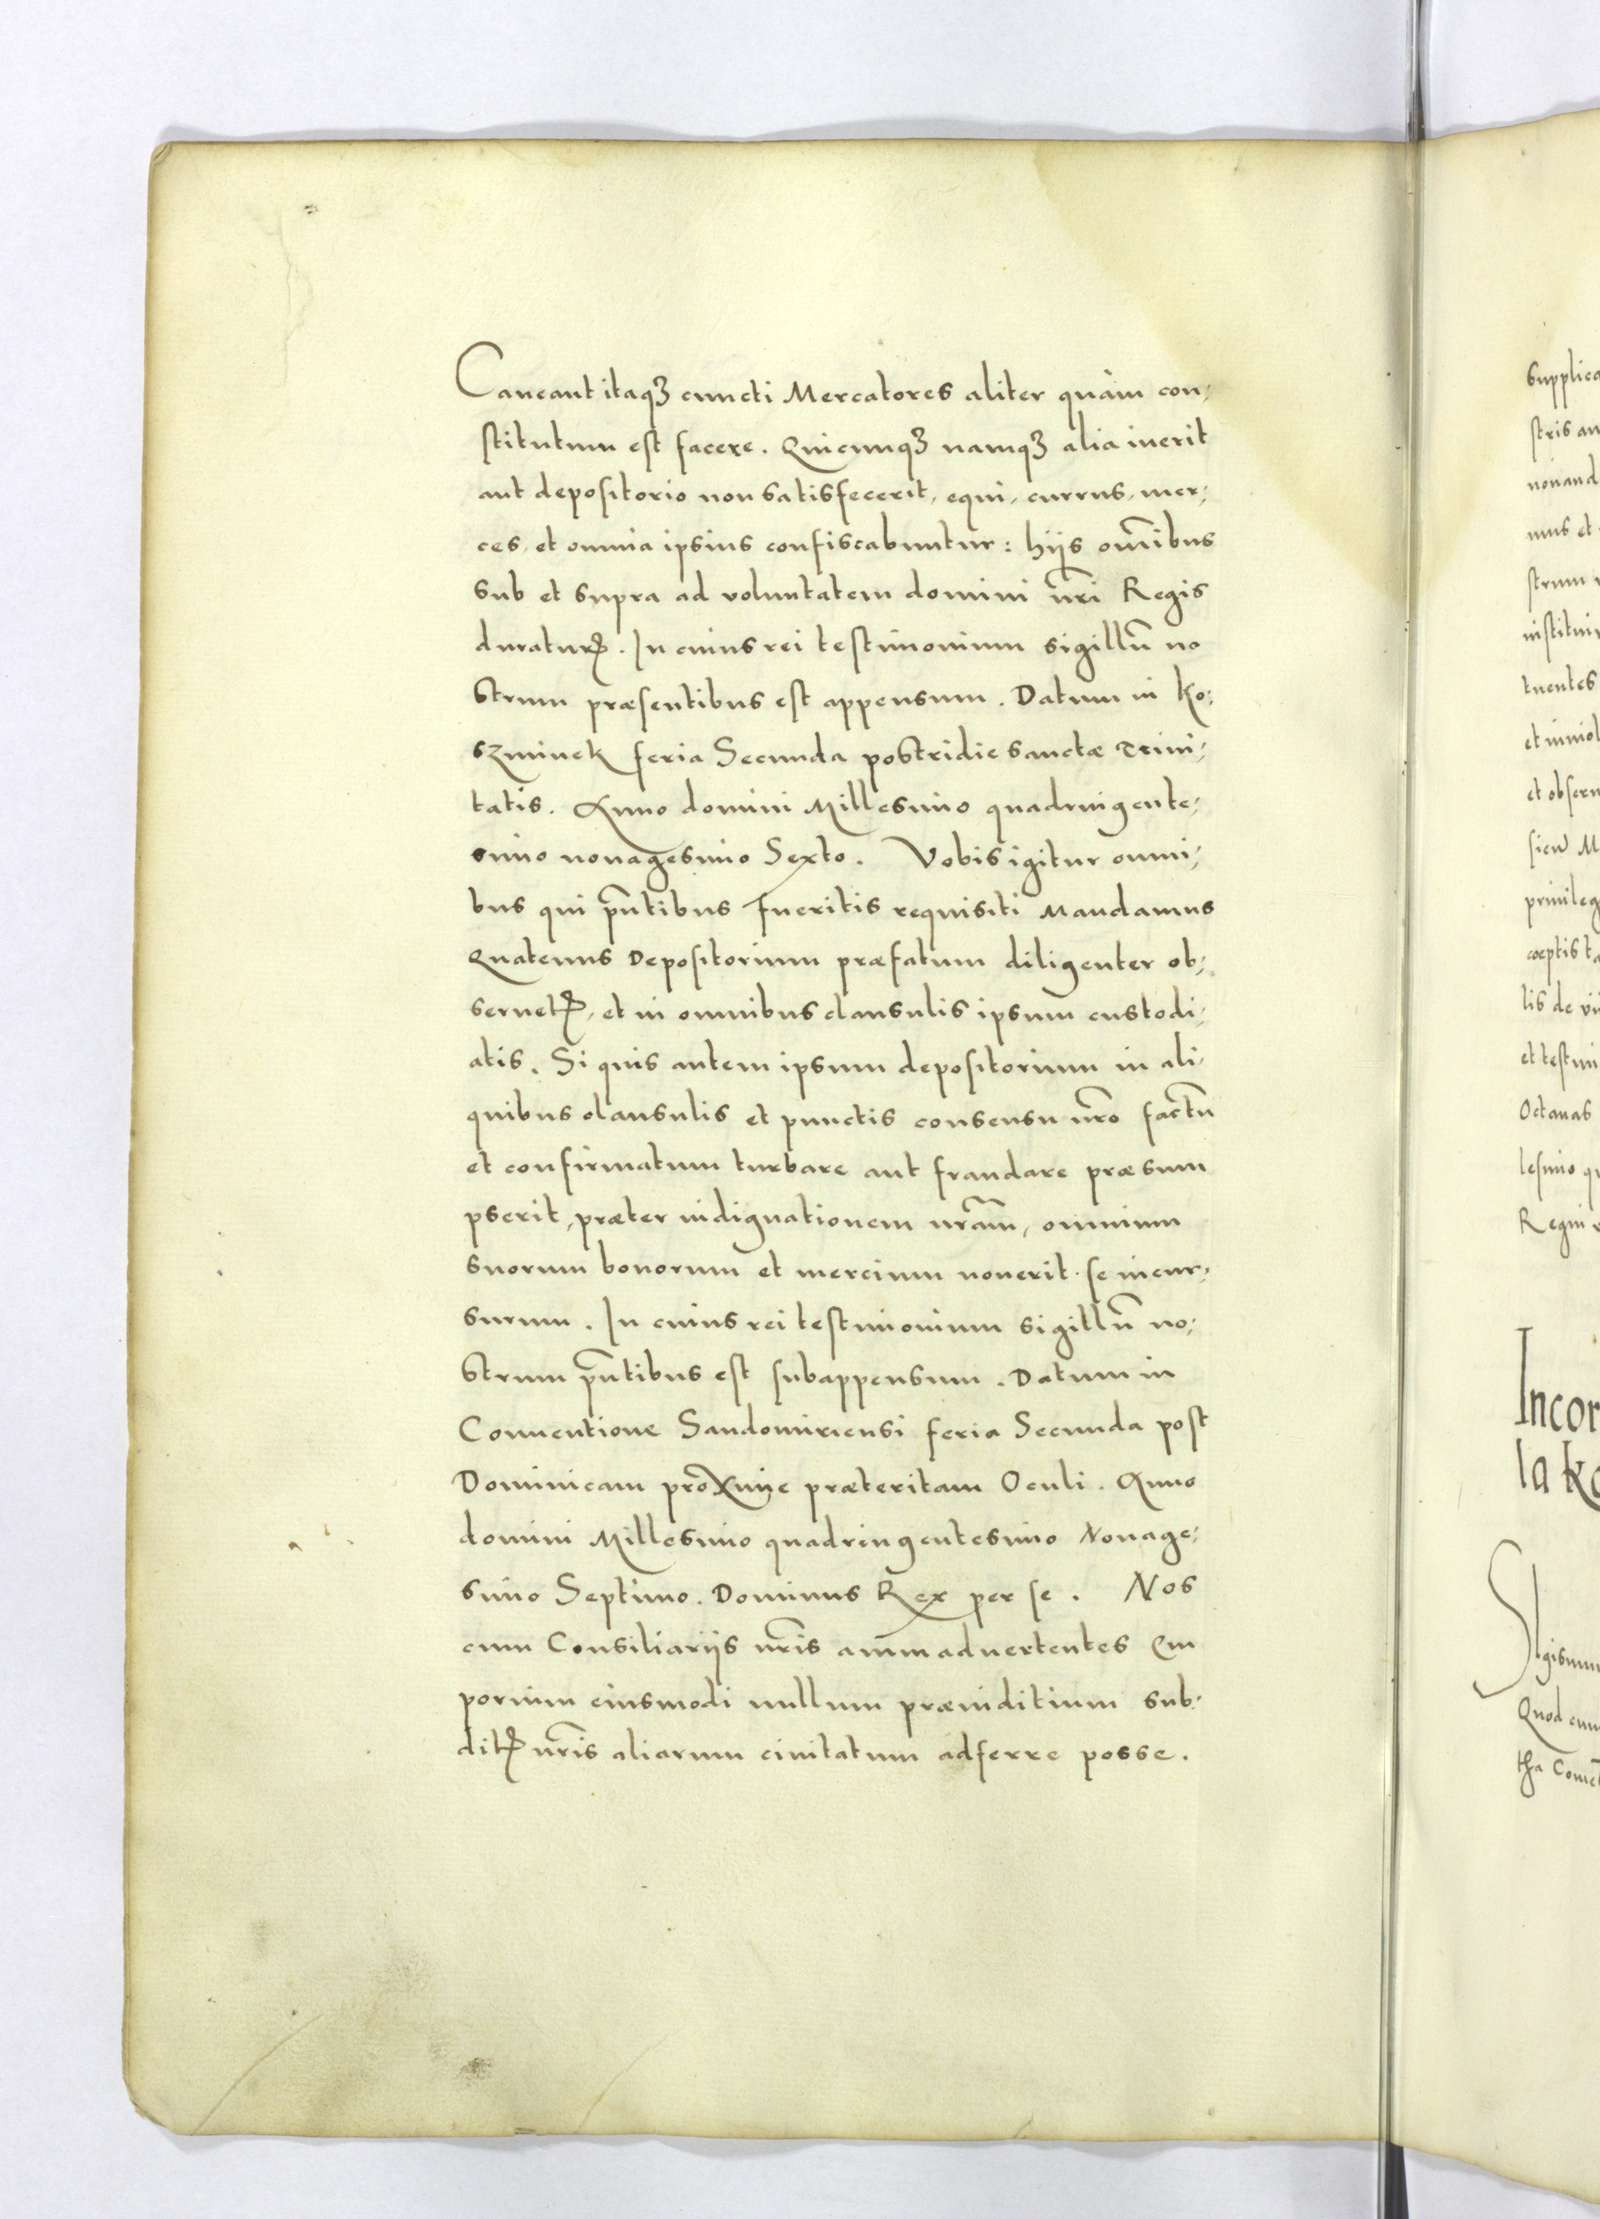 Caueant itaqꝫ cuncti Mercatores aliter quàm con;
stitutum est facere. Quicunqꝫ namqꝫ alia iuerit
aut depositorio non satisfecerit, equi, currus, mer;
ces, et omnia ipsius confiscabuntur: hijs om̅ibus
sub et supra ad voluntatem domini n̅ri Regis
duraturꝭ. In cuius rei testimonium sigillu̅ no
strum præsentibus est appensum. Datum in Ko;
szminek feria Secunda postridie sanctæ Trini;
tatis. Anno domini Millesimo quadringente;
simo nonagesimo Sexto. Vobis igitur omni;
bus qui p̅ntibus Fueritis requisiti Mandamus
Quatenus Depositorium præfatum diligenter ob;
seruetꝭ, et in omnibus clausulis ipsum custodi;
atis. Si quis autem ipsum depositorium in ali;
quibus clausulis et punctis consensu n̅ro factu̅
et confirmatum turbare aut fraudare præsum
pserit, præter indignationem n̅ram, omnium
suorum bonorum et mercium nouerit se incur;
surum. In cuius rei testimonium sigillu̅ no;
strum p̅ntibus est subappensum. Datum in
Conuentione Sandomiriensi feria Secunda post
Dominicam pro̅xime præteritam Oculi. Anno
domini Millesimo quadringentesimo Nonage;
simo Septimo. Dominus Rex per se. Nos
cum Consiliarijs n̅ris animaduertentes Em
porium eiusmodi nullum præiuditium sub;
ditꝭ n̅ris aliarum ciuitatum adferre posse.
supplica
stris au
nouand
mus et
strum
institui
tuentes
et inuiol
et obseru
sicu M
priuileg
cœptis ta
lis de
et testim
Octauas
lesimo qu
Regni
Incor
la Ko
SIgismun
Quod cum
tha Comet